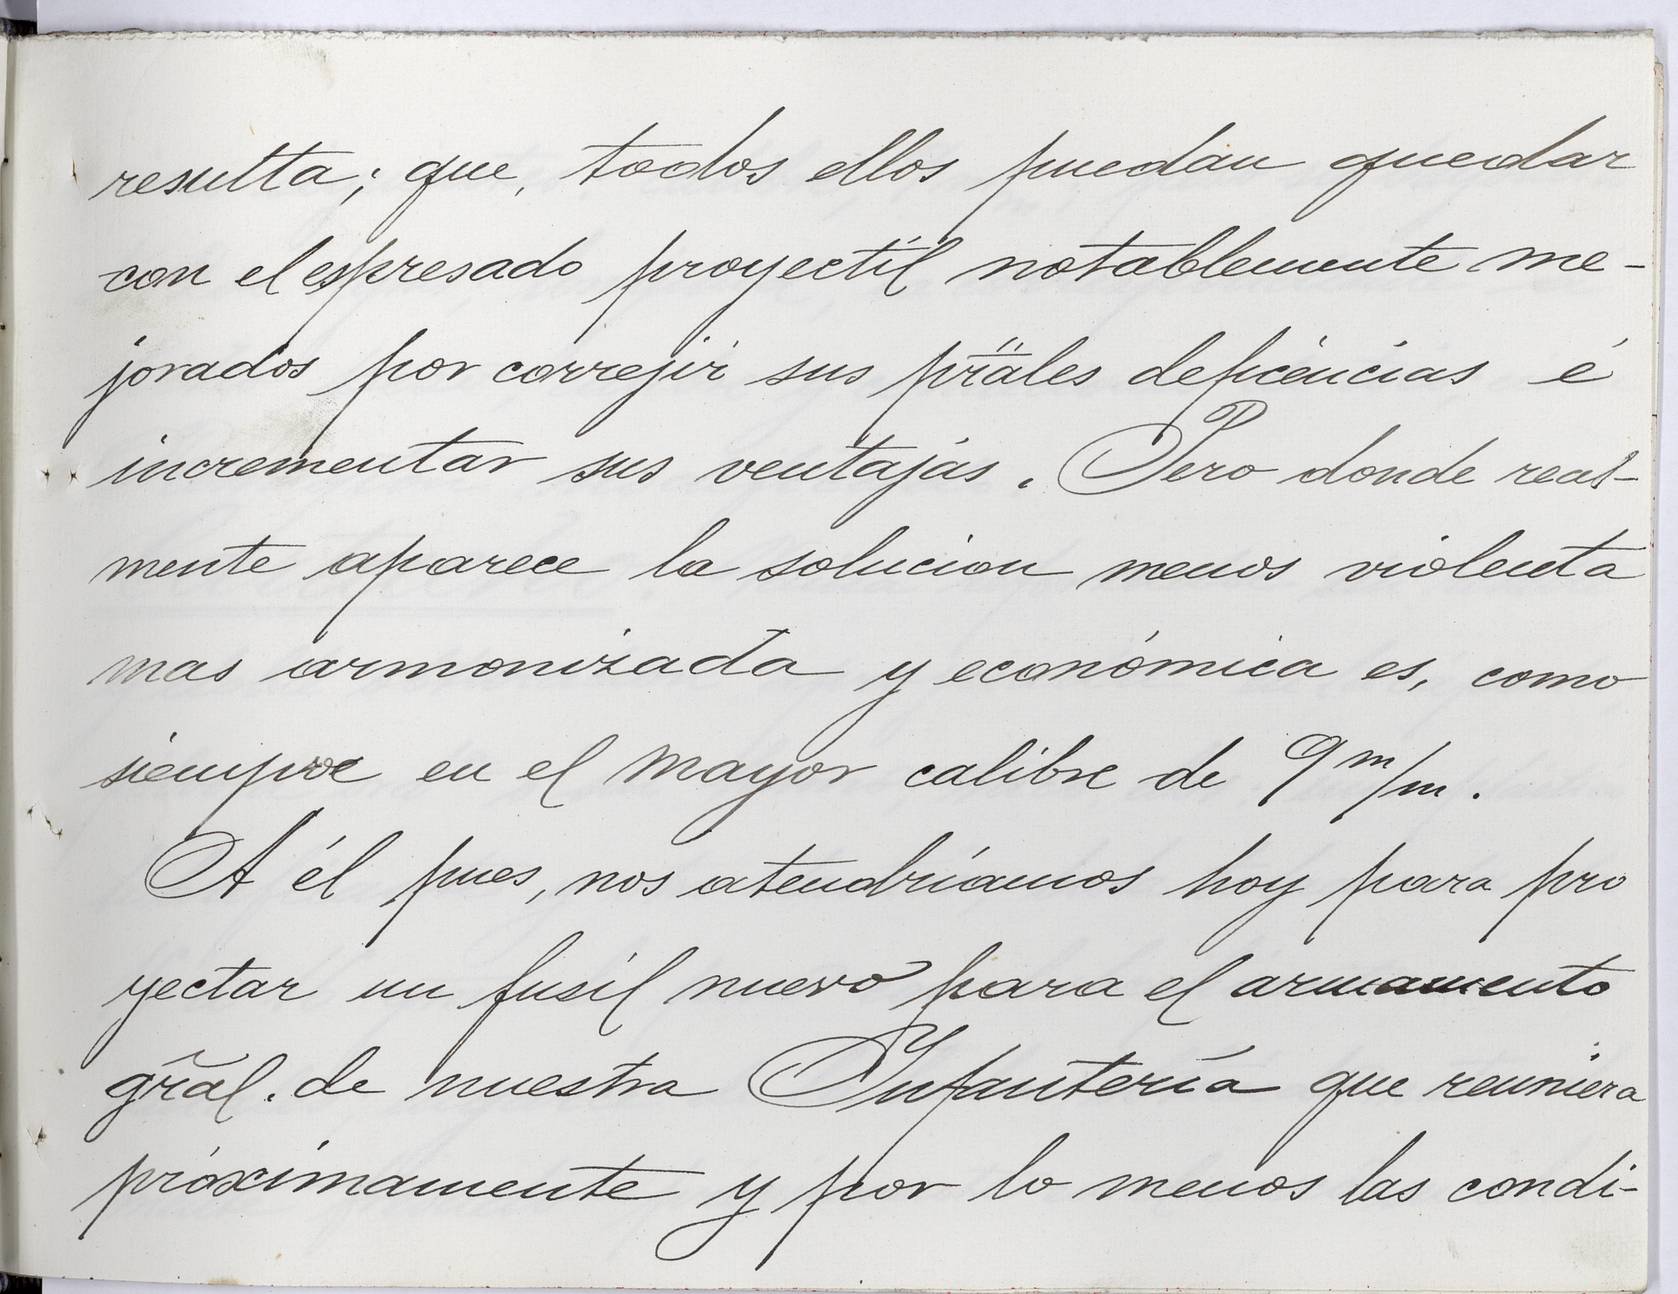 resulta; que, todos ellos puedan quedar
con el espresado proyectíl notablemente me-
jorados por correjir sus pr̃ales deficiencias é
incrementar sus ventajas. Pero donde real-
mente aparece la solucion menos violenta
mas armonizada y económica es, como
siempre en el mayor calibre de 9 m/m.
A él pues, nos atendríamos hoy para pro
yectar un fusil nuevo para el armamento
gr̃al. de nuestra Infantería que reuniera
próximamente y por lo menos las condi-